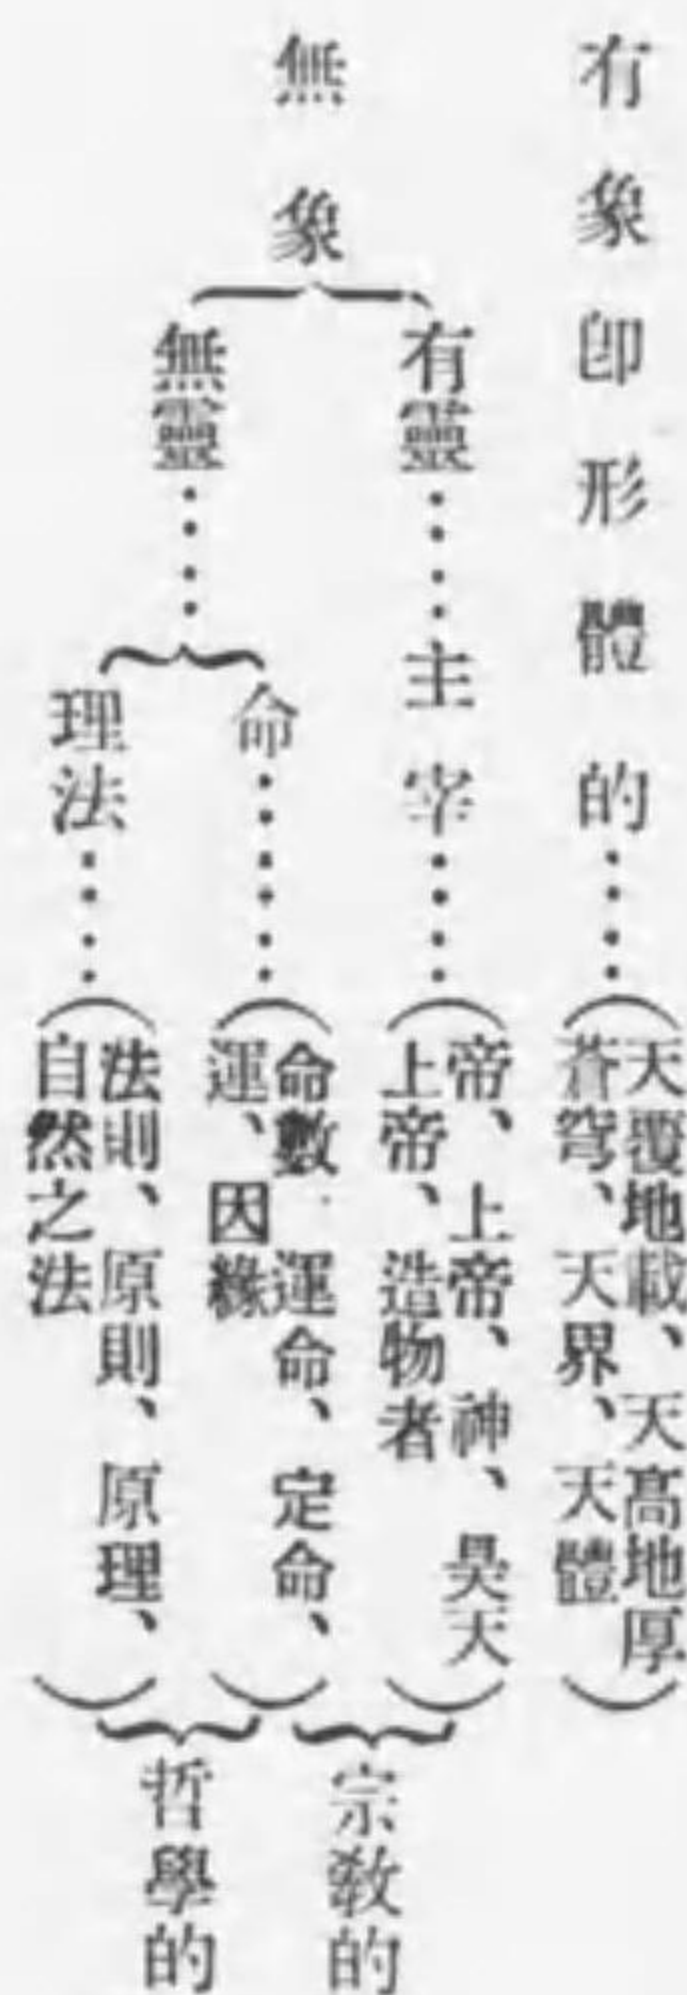 有象卽形體的
天覆地載、天高地厚
蒼穹、天界、天體
無象
有靈
主宰
帝、上帝、神、昊天
上帝、造物者
無靈
命
命數、運命、定命、
運、因緣
理法
法則、原則、原理、
自然之法
宗敎的
哲學的